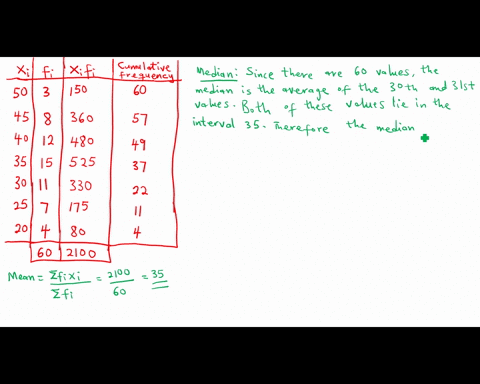 Xi fi Xifi Cumulative frequency
50 3 150 60
45 8 360 57
40 12 480 49
35 15 525 37
30 11 330 22
25 7 175 11
20 4 80 4
60 2100
Mean = Σfixi / Σfi = 2100 / 60 = 35
Median: Since there are 60 values, the
median is the average of the 30th and 31st
values. Both of these values lie in the
interval 35. Therefore the median